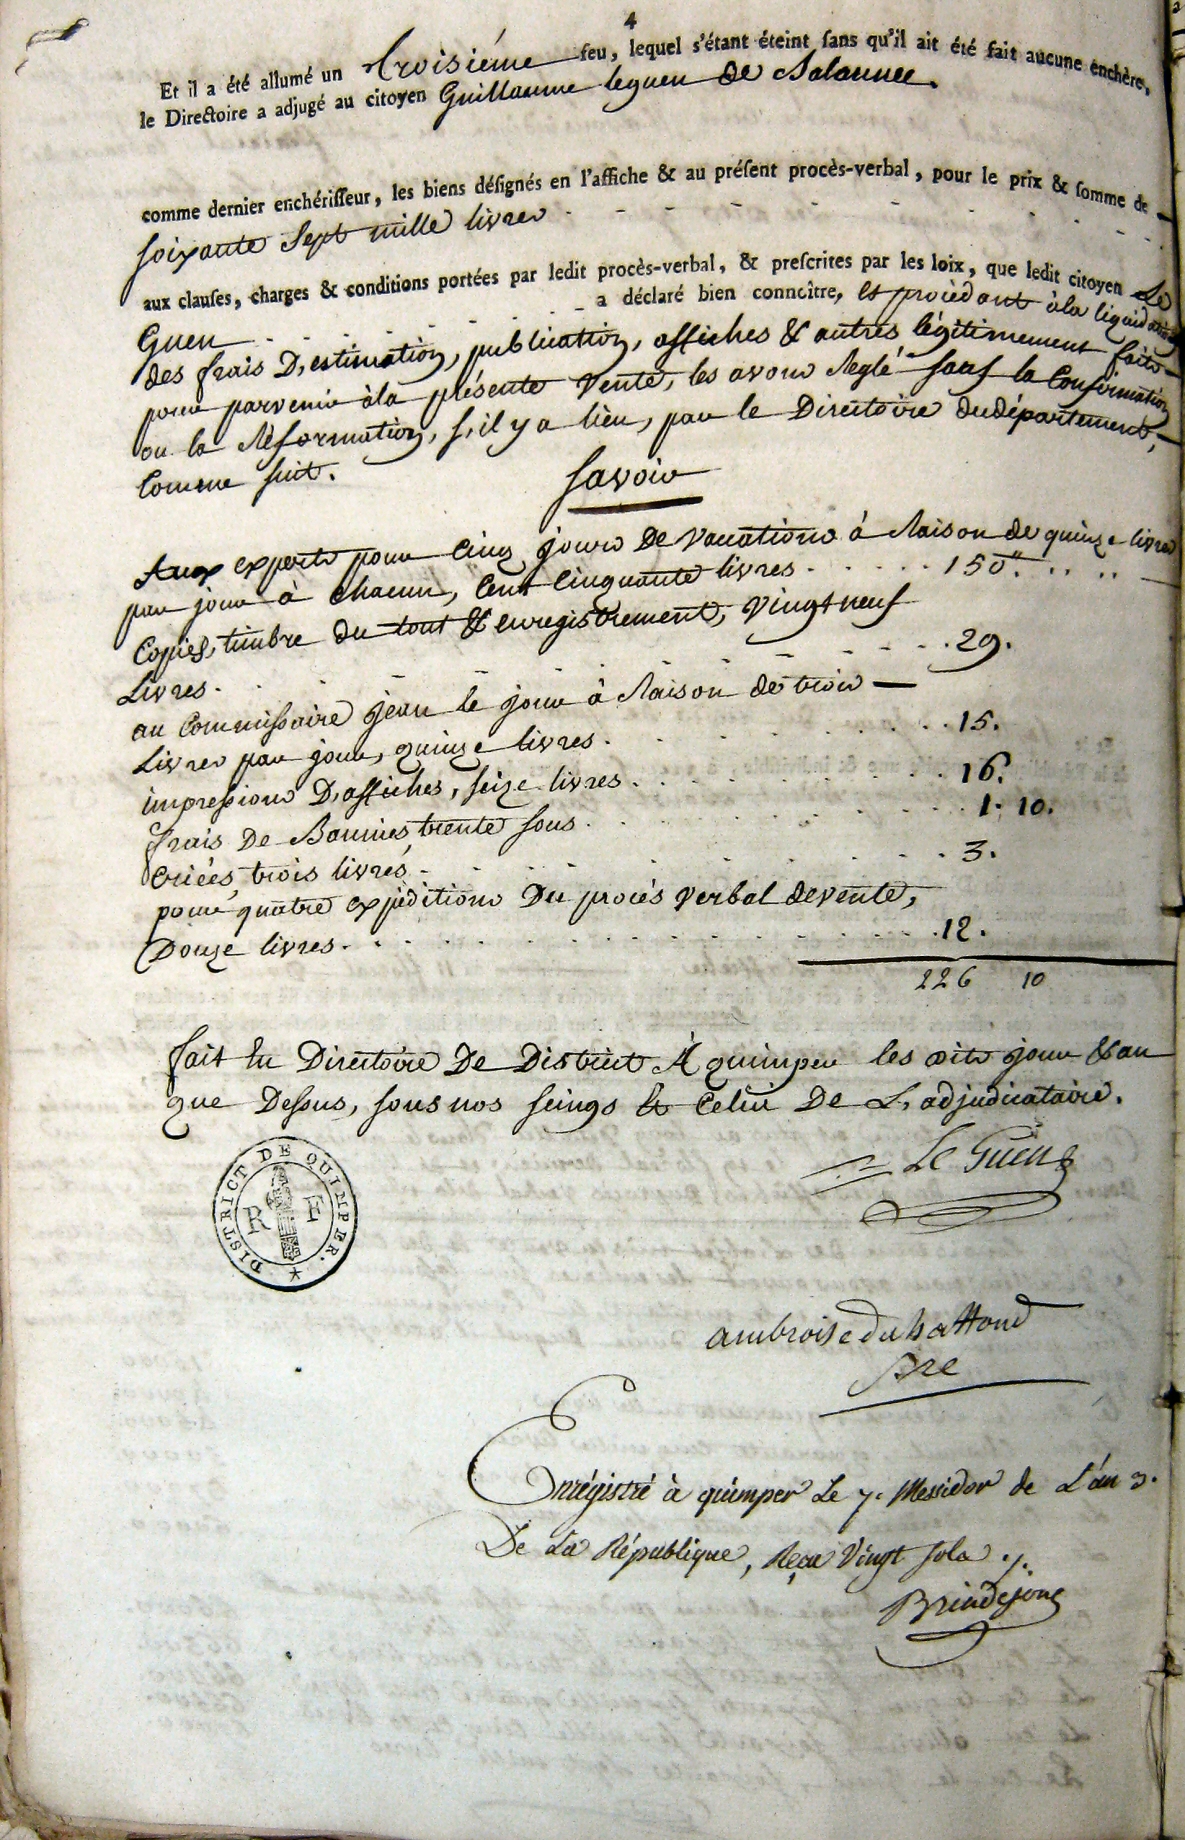 4
Et il a été allumé un troisiéme feu, lequel s'étant éteint sans qu'il ait été fait aucune enchère,
le Directoire a adjugé au citoyen Guillaume leguen de
comme dernier enchérisseur, les biens désignés en l'affiche & au présent procès-verbal, pour le prix & somme de
soixante Sept mille livres
aux clauses, charges & conditions portées par ledit procès-verbal, & prescrites par les loix, que ledit citoyen Le
Guen a déclaré bien connoître, et procèdant àla liquidation
des frais D'estimation, publication, affiches & autres légitimement faits
pour parvenir àla présente vente, les avons Reglé sauf la Confirmation
ou la Réformation, s'il y a lieu, par le Directoire dudépartement,
Comme suit.
Savoir
Aux experts pour Cinq jours De Vacations à Raison de quinze livres
par jour à Chacun, Cent Cinquante livres 150.
Copies, timbre du tout & enregistrement, Vingt neuf
Livres. 29.
au Commissaire jean le jour à Raison de trois
Livres par jour, quinze livres. 15.
impressions D'affiches, seize livres. 16.
frais De Bannies, trente sous. 1. 10.
Criées, trois livres. 3.
pour quatre expéditions Du procés Verbal devente,
Douze livres. 12.
226 10
fait En Directoire De District À quimper les dits jour & an
que Dessus, sous nos seings & Celui De L'adjudicataire.
Le Guen
DISTRICT DE QUIMPER.
R F
ambroise du hattond
Sre
Enrégistré à quimper Le 7e Messidor de L'an 3e
De La République, Reçu Vingt sols
Brindejonc